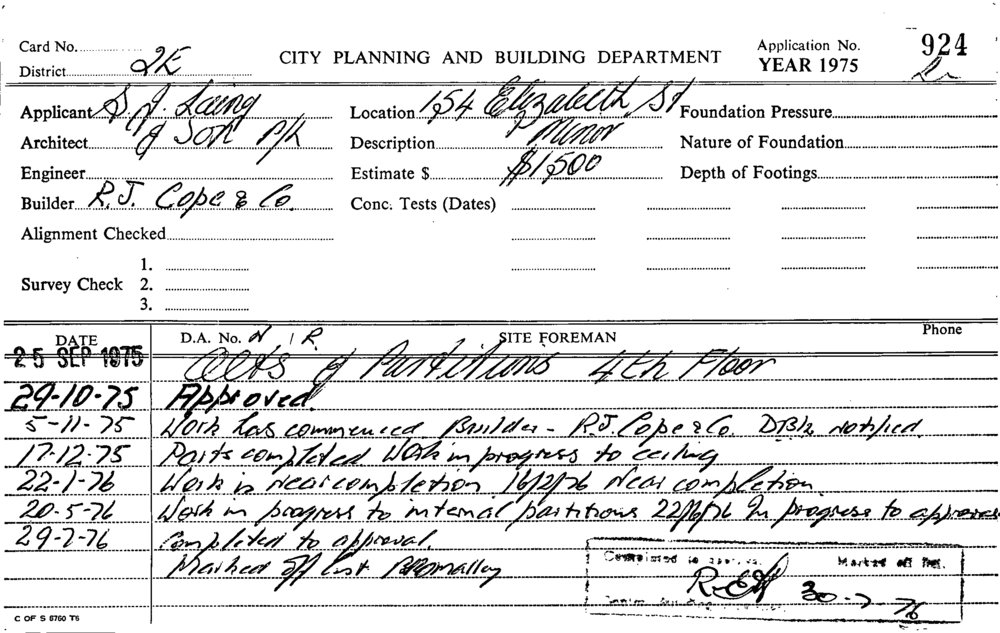 Card No.
District 2E
CITY PLANNING AND BUILDING DEPARTMENT
Application No. 924
YEAR 1975
Applicant S. J. Laing
Location 154 Elizabeth St
Foundation Pressure
Architect & Son P/L
Description Minor
Nature of Foundation
Engineer
Estimate $ $1,500
Depth of Footings
Builder R.J. Cope & Co.
Conc. Tests (Dates)
Alignment Checked
Survey Check
1.
2.
3.
DATE
D.A. No. N/R
SITE FOREMAN
Phone
25 SEP 1975 Alts & Partitions 4th Floor
29-10-75 Approved
5-11-75 Work has commenced Builder - R.J. Cope & Co. notified
17-12-75 Parts completed Work in progress to ceiling
22-1-76 Work is near completion 16/2/76 Near completion
20-5-76 Work in progress to internal partitions In progress to
29-7-76 Completed to approval.
Marked off list
Completed to approval. Marked off list.
30-7-76
C OF S 6760 T6